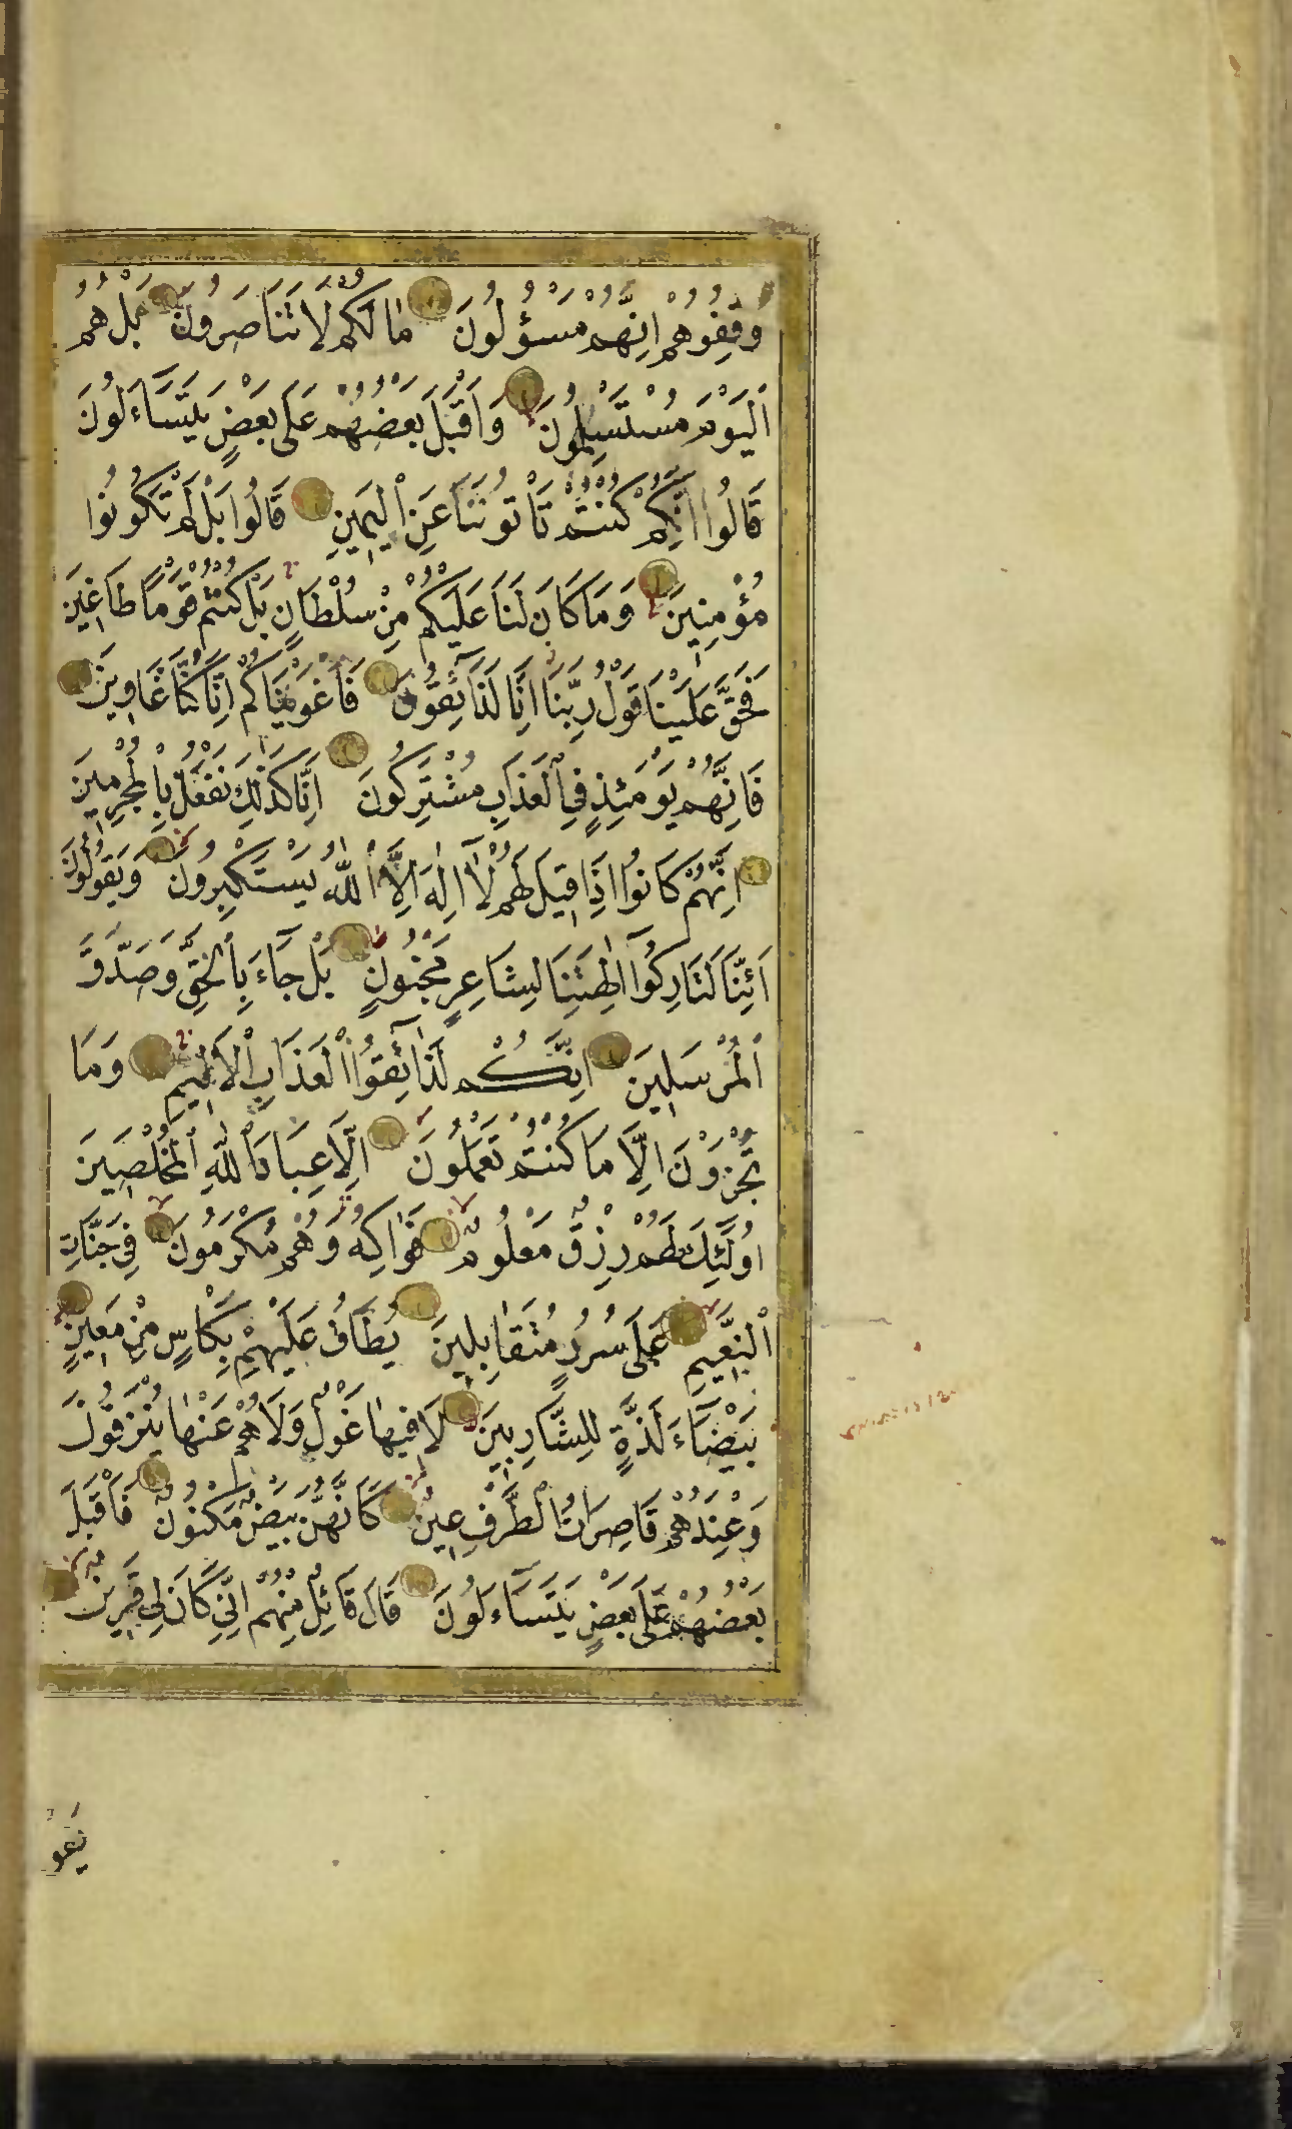 وَقِفُوهُمْ اِنَّهُمْ مَسْؤُلُونَ مَالَكُمْ لَا تَنَاصَرُونَ بَلْ هُمُ
ٱلْيَوْمَ مُسْتَسْلِمُونَ وَاَقْبَلَ بَعْضُهُمْ عَلَى بَعْضٍ يَتَسَاءَلُونَ
قَالُوا اِنَّكُمْ كُنْتُمْ تَأْتُونَنَا عَنِ ٱلْيَمِينِ قَالُوا بَلْ لَمْ تَكُونُوا
مُؤْمِنِينَ وَمَا كَانَ لَنَا عَلَيْكُمْ مِنْ سُلْطَانٍ بَلْ كُنْتُمْ قَوْمًا طَاغِينَ
فَحَقَّ عَلَيْنَا قَوْلُ رَبِّنَا اِنَّا لَذَآئِقُونَ فَاَغْوَيْنَاكُمْ اِنَّا كُنَّا غَاوِينَ
فَاِنَّهُمْ يَوْمَئِذٍ فِي ٱلْعَذَابِ مُشْتَرِكُونَ اِنَّا كَذٰلِكَ نَفْعَلُ بِٱلْمُجْرِمِينَ
اِنَّهُمْ كَانُوا اِذَا قِيلَ لَهُمْ لَآ اِلٰهَ اِلَّا ٱللّٰهُ يَسْتَكْبِرُونَ وَيَقُولُونَ
اَئِنَّا لَتَارِكُوٓا اٰلِهَتِنَا لِشَاعِرٍ مَجْنُونٍ بَلْ جَآءَ بِٱلْحَقِّ وَصَدَّقَ
ٱلْمُرْسَلِينَ اِنَّكُمْ لَذَآئِقُوا ٱلْعَذَابِ ٱلْاَلِيمِ وَمَا
تُجْزَوْنَ اِلَّا مَا كُنْتُمْ تَعْمَلُونَ اِلَّا عِبَادَ ٱللّٰهِ ٱلْمُخْلَصِينَ
اُولٰٓئِكَ لَهُمْ رِزْقٌ مَعْلُومٌ فَوَاكِهُ وَهُمْ مُكْرَمُونَ فِي جَنَّاتِ
ٱلنَّعِيمِ عَلَى سُرُرٍ مُتَقَابِلِينَ يُطَافُ عَلَيْهِمْ بِكَاْسٍ مِنْ مَعِينٍ
بَيْضَآءَ لَذَّةٍ لِلشَّارِبِينَ لَا فِيهَا غَوْلٌ وَلَا هُمْ عَنْهَا يُنْزَفُونَ
وَعِنْدَهُمْ قَاصِرَاتُ ٱلطَّرْفِ عِينٌ كَاَنَّهُنَّ بَيْضٌ مَكْنُونٌ فَاَقْبَلَ
بَعْضُهُمْ عَلَى بَعْضٍ يَتَسَآءَلُونَ قَالَ قَآئِلٌ مِنْهُمْ اِنِّي كَانَ لِي قَرِينٌ